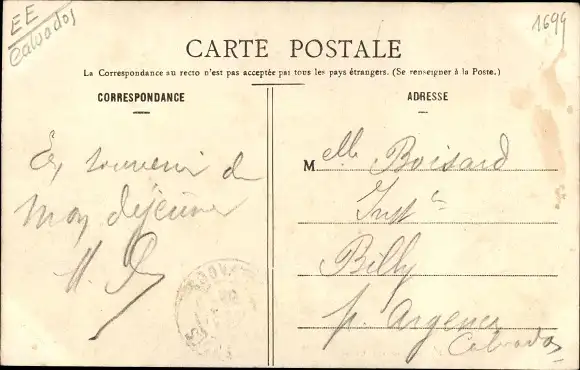 EE
Calvados
1699
CARTE POSTALE
La Correspondance au recto n'est pas acceptée par tous les pays étrangers. (Se renseigner à la Poste.)
CORRESPONDANCE
En souvenir de
mon déjeuner
ADRESSE
Melle Boisard
Inst ce
Billy
p. Argences
Calvados